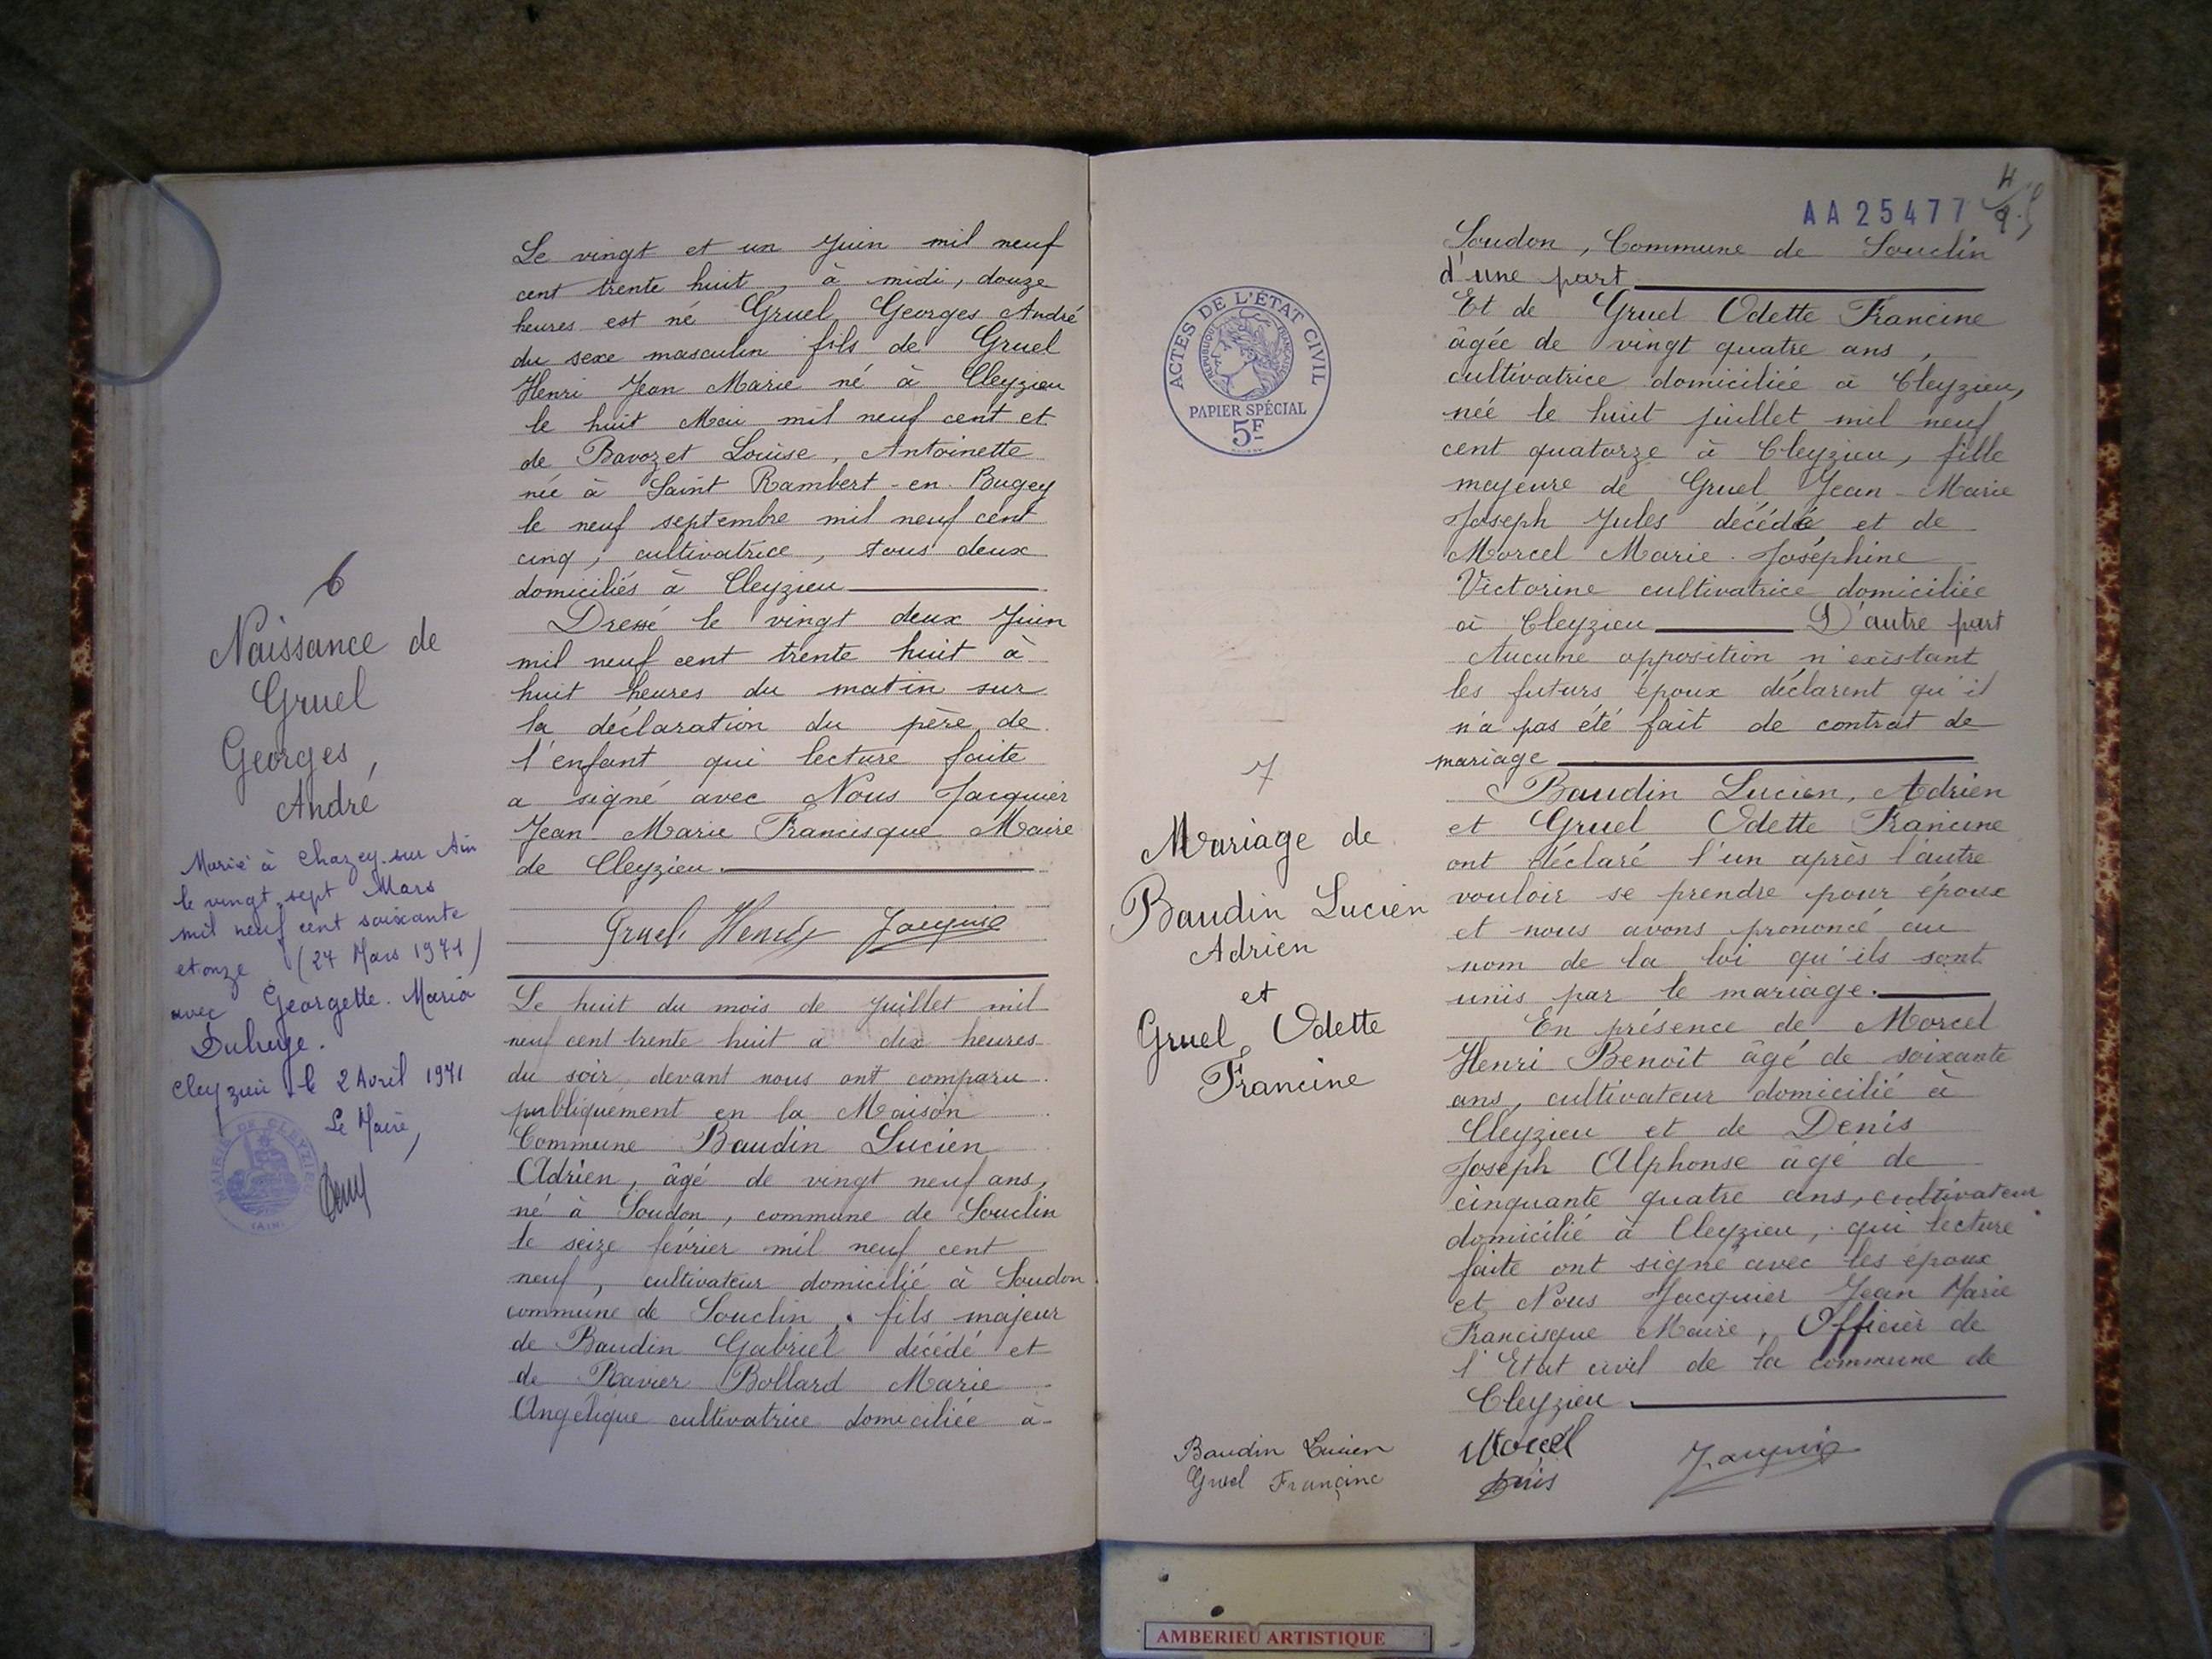 6
Naissance de
Gruel
Georges,
André
Marié à Chazey-sur Ain
le vingt sept Mars
mil neuf cent soixante
et onze (27 Mars 1971)
avec Georgette Maria
Cleyzieu le 2 Avril 1971
Le Maire,
MAIRIE DE CLEYZIEU
(AIN)
Le vingt et un Juin mil neuf
cent trente huit, à midi, douze
heures est né Gruel Georges André
du sexe masculin fils de Gruel
Henri Jean Marie né à Cleyzieu
le huit Mai mil neuf cent et
de Bavozet Louise, Antoinette
née à Saint Rambert-en-Bugey
le neuf septembre mil neuf cent
cinq, cultivatrice, tous deux
domiciliés à Cleyzieu
Dressé le vingt deux Juin
mil neuf cent trente huit à
huit heures du matin sur
la déclaration du père de
l'enfant qui lecture faite
a signé avec Nous Jacquier
Jean Marie Francisque Maire
de Cleyzieu.
Gruel Henri Jacquier
Le huit du mois de Juillet mil
neuf cent trente huit a dix heures
du soir, devant nous ont comparu
publiquement en la Maison
Commune Baudin Lucien
Adrien, âgé de vingt neuf ans,
né à Soudon, commune de Souclin
le seize février mil neuf cent
neuf, cultivateur domicilié à Soudon
commune de Souclin, fils majeur
de Baudin Gabriel décédé et
de Ravier Bollard Marie
Angélique cultivatrice domiciliée à
AA 25477
ACTES DE L'ÉTAT CIVIL
RÉPUBLIQUE FRANÇAISE
PAPIER SPÉCIAL
5F
7
Mariage de
Baudin Lucien
Adrien
et
Gruel Odette
Francine
Soudon, Commune de Souclin
d'une part
Et de Gruel Odette Francine
âgée de vingt quatre ans,
cultivatrice domiciliée à Cleyzieu,
née le huit juillet mil neuf
cent quatorze à Cleyzieu, fille
majeure de Gruel Jean-Marie
Joseph Jules décédé et de
Morcel Marie-Joséphine
Victorine cultivatrice domiciliée
à Cleyzieu D'autre part
Aucune opposition n'existant
les futurs époux déclarent qu'il
n'a pas été fait de contrat de
mariage
Baudin Lucien, Adrien
et Gruel Odette Francine
ont déclaré l'un après l'autre
vouloir se prendre pour époux
et nous avons prononcé au
nom de la loi qu'ils sont
unis par le mariage.
En présence de Morcel
Henri Benoît âgé de soixante
ans, cultivateur domicilié à
Cleyzieu et de Denis
Joseph Alphonse âgé de
cinquante quatre ans, cultivateur
domicilié à Cleyzieu, qui lecture
faite ont signé avec les époux
et Nous Jacquier Jean Marie
Francisque Maire, Officier de
l'Etat civil de la commune de
Cleyzieu.
Baudin Lucien
Gruel Francine
Morcel
Denis
Jacquier
AMBERIEU ARTISTIQUE